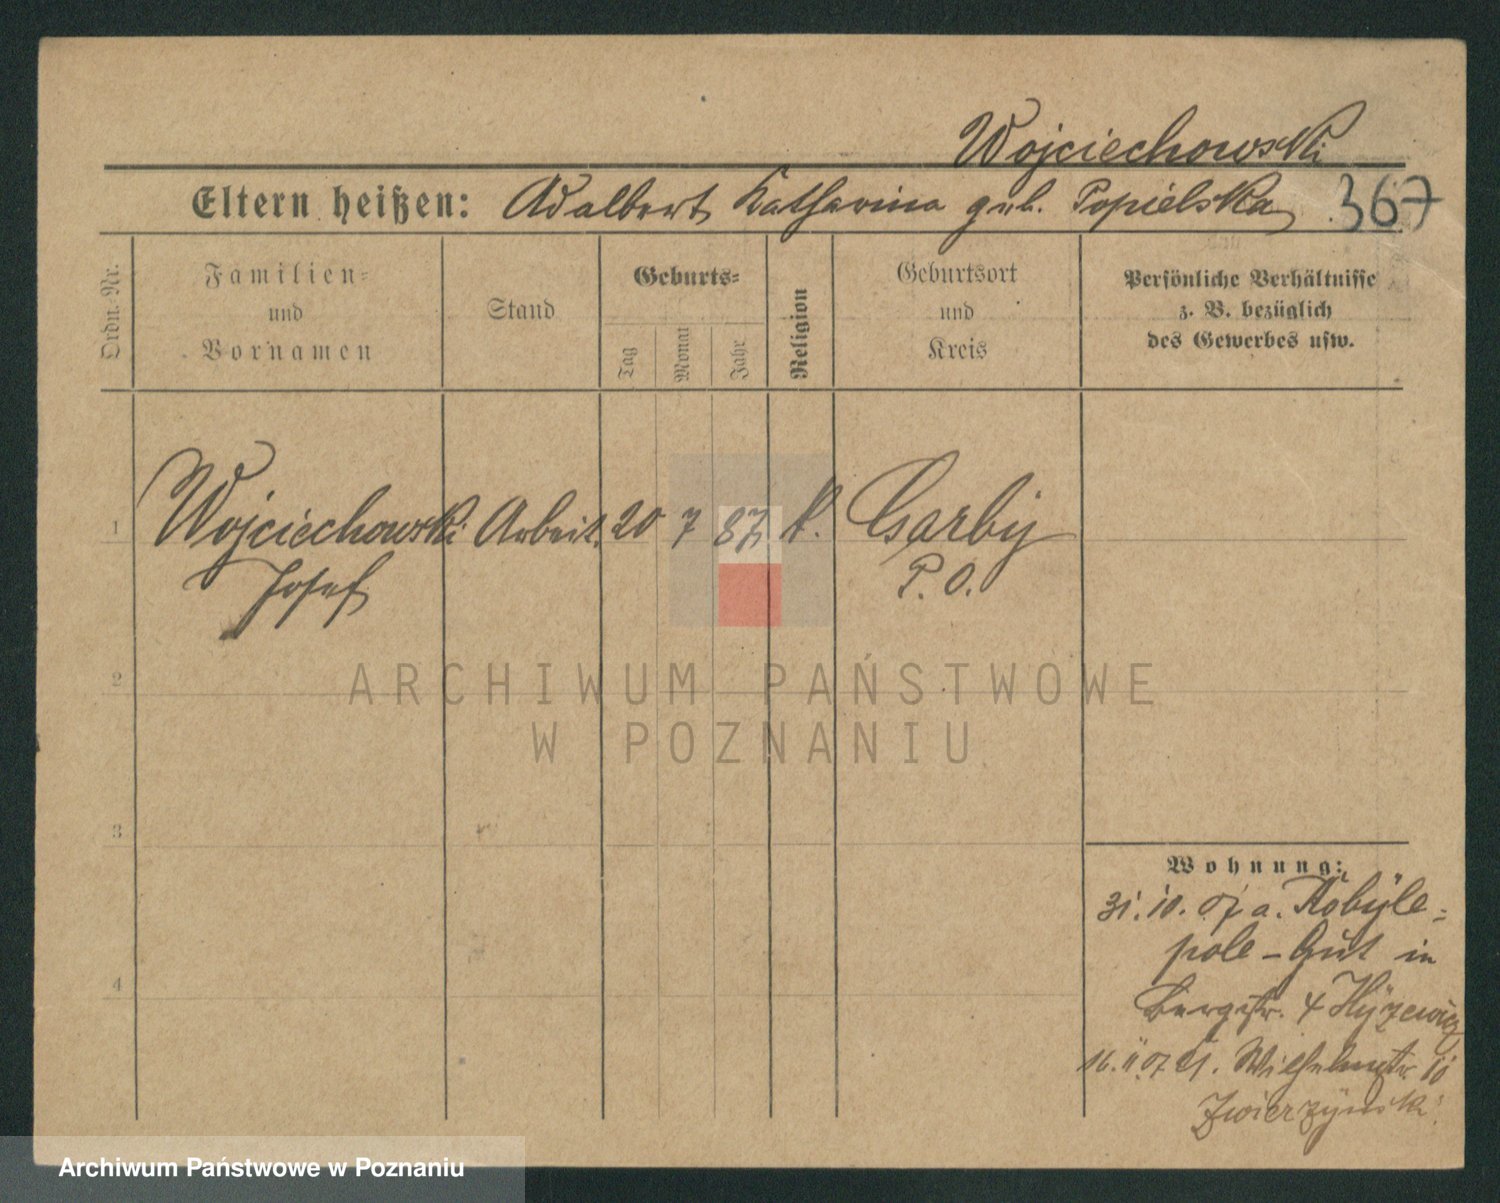 Wojciechowski
Eltern heißen: Adalbert Katharina geb. Popielska 367
Ordn.-Nr.
Familien-
und
Vornamen
Stand
Geburts-
Tag
Monat
Jahr
Religion
Geburtsort
und
Kreis
Persönliche Verhältnisse
z. B. bezüglich
des Gewerbes usw.
1 Wojciechowski Arbeit. 20 7 87 k. Garby
Josef P. O.
2
ARCHIWUM PAŃSTWOWE
W POZNANIU
3
4
Wohnung:
31.10.07 a. Kobyle-
pole-Gut in
Bergstr. 4 Hyzewicz
16.11.07 U. Wilhelmstr.
Zwierzynski
Archiwum Państwowe w Poznaniu